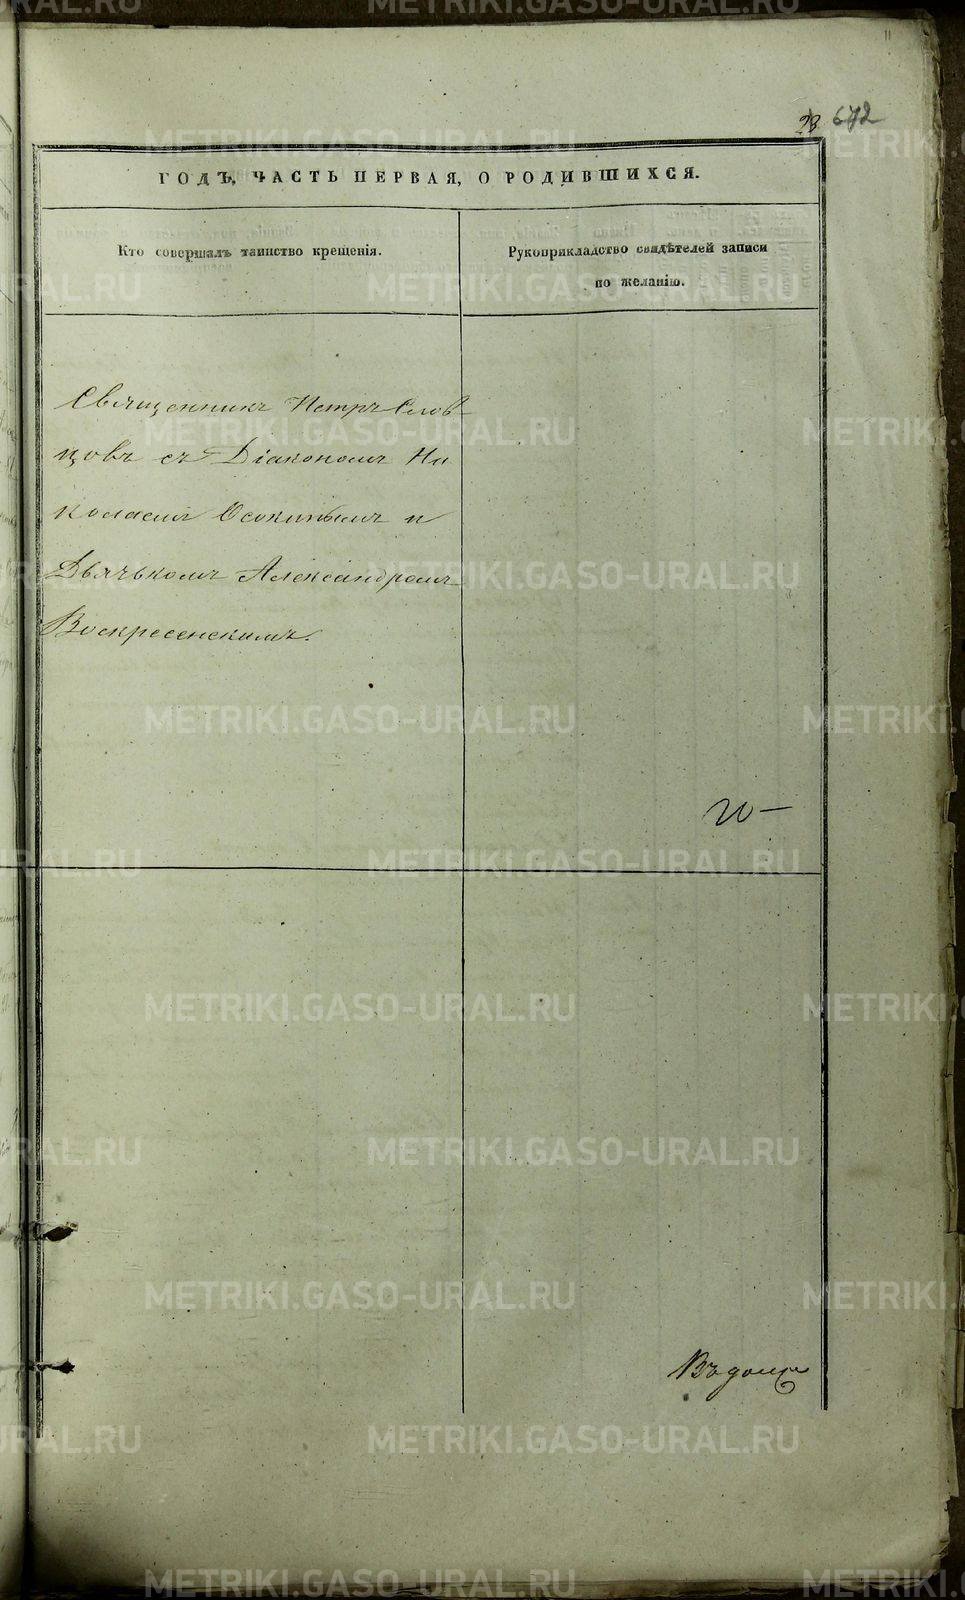 11
23 672
ГОДЪ, ЧАСТЬ ПЕРВАЯ, О РОДИВШИХСЯ.
Кто совершалъ таинство крещенія.
Рукоприкладство свидѣтелей записи
по желанію.
Священникъ Петръ Слов
цовъ съ Діакономъ Ни
колаемъ Осокинымъ и
Дьячькомъ Александромъ
Воскресенскимъ.
METRIKI.GASO-URAL.RU